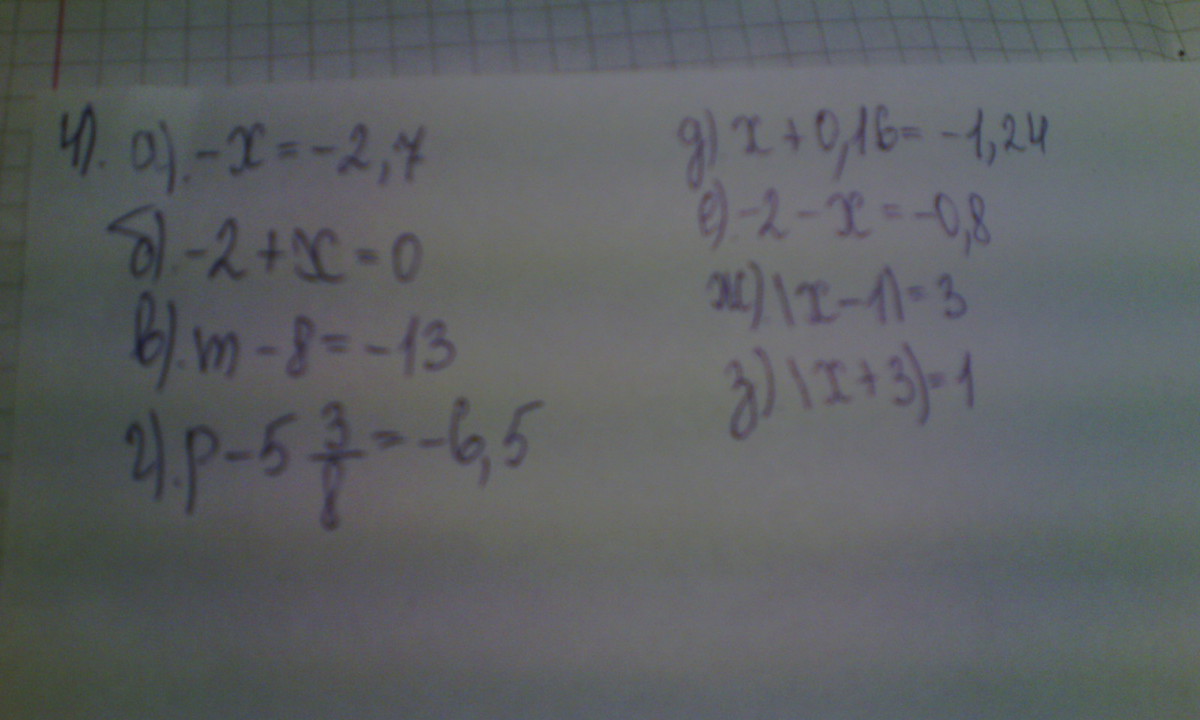 4). а). -x = -2,7
б). -2 + x = 0
в). m - 8 = -13
г). p - 5 3/8 = -6,5
д) x + 0,16 = -1,24
е). -2 - x = -0,8
ж) |x - 1| = 3
з) |x + 3| = 1